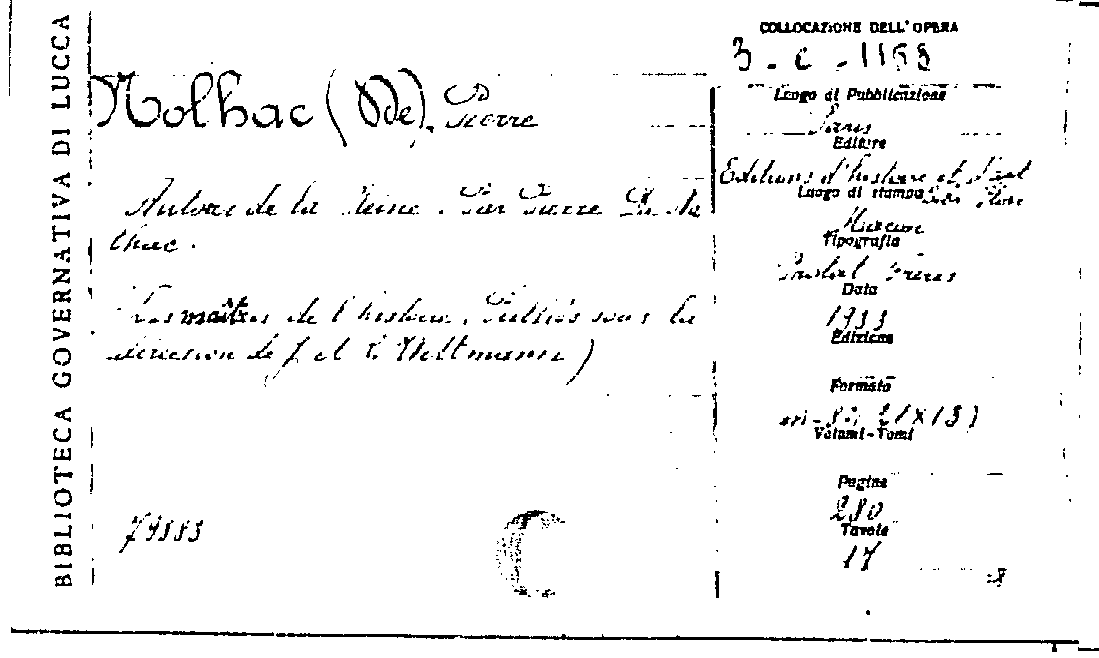 BIBLIOTECA GOVERNATIVA DI LUCCA
Nolhac (De), Pierre
Autour de la Reine. Par Pierre De No
lhac.
Les maîtres de l'histoire. Publiés sous la
direction de J. et
79883
C
COLLOCAZIONE DELL'OPERA
3 - C - 1168
Luogo di Pubblicazione
Paris
Editore
Editions d'histoire et d'art
Luogo di stampa
Tipografia
Frères
Data
1933
Edizione
Formato
in-8°; 21×13)
Volumi-Tomi
Pagine
280
Tavole
17